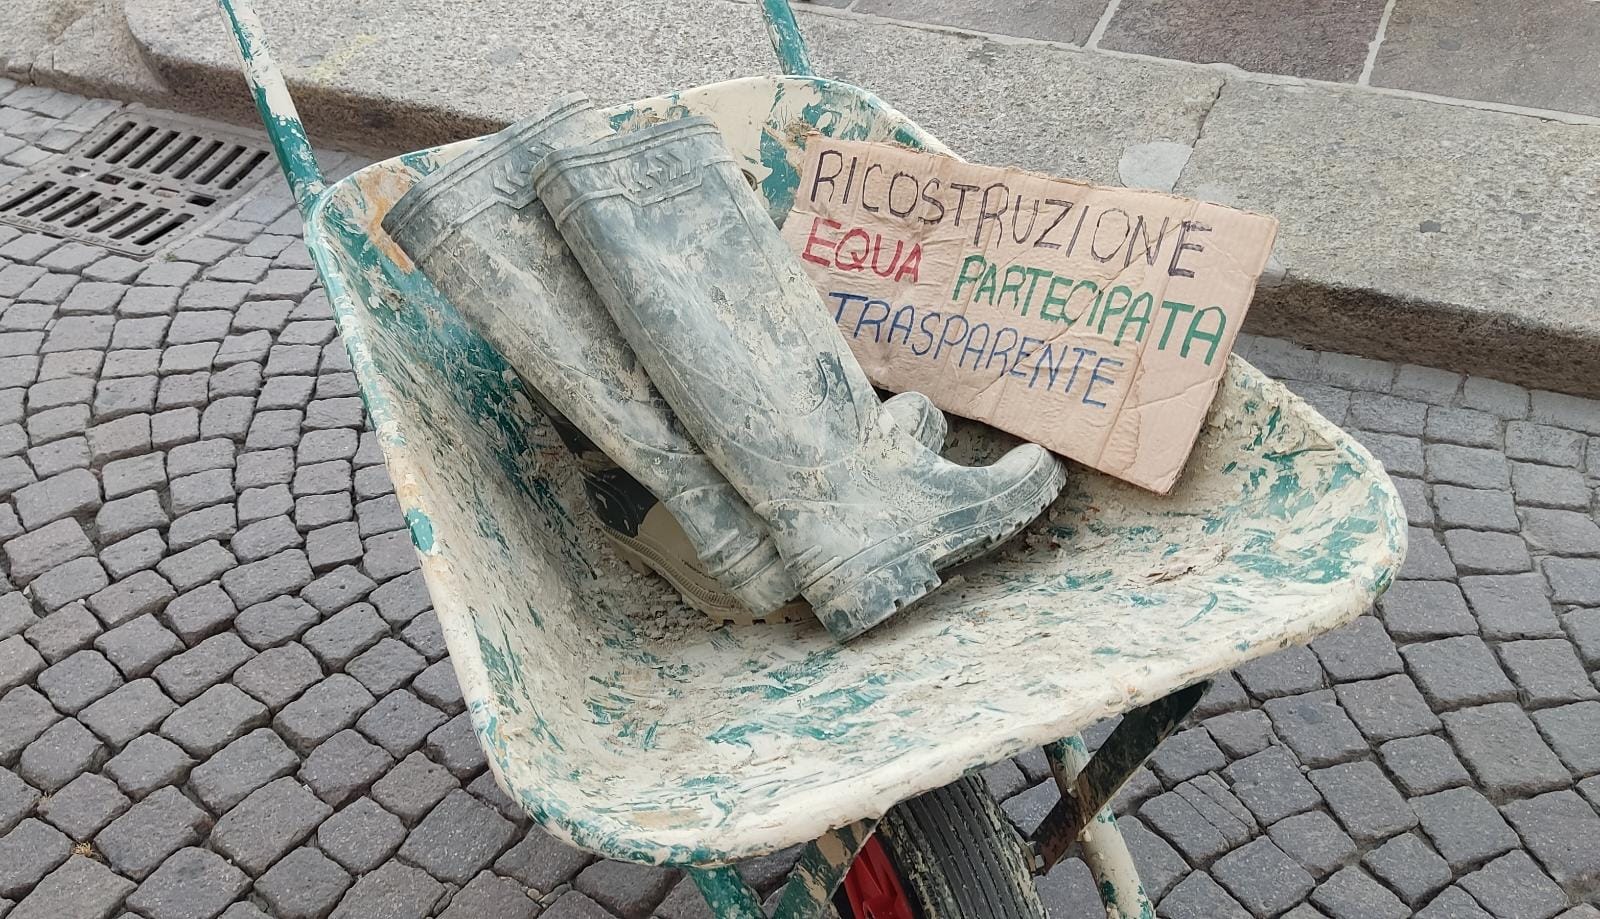 RICOSTRUZIONE
EQUA PARTECIPATA
TRASPARENTE